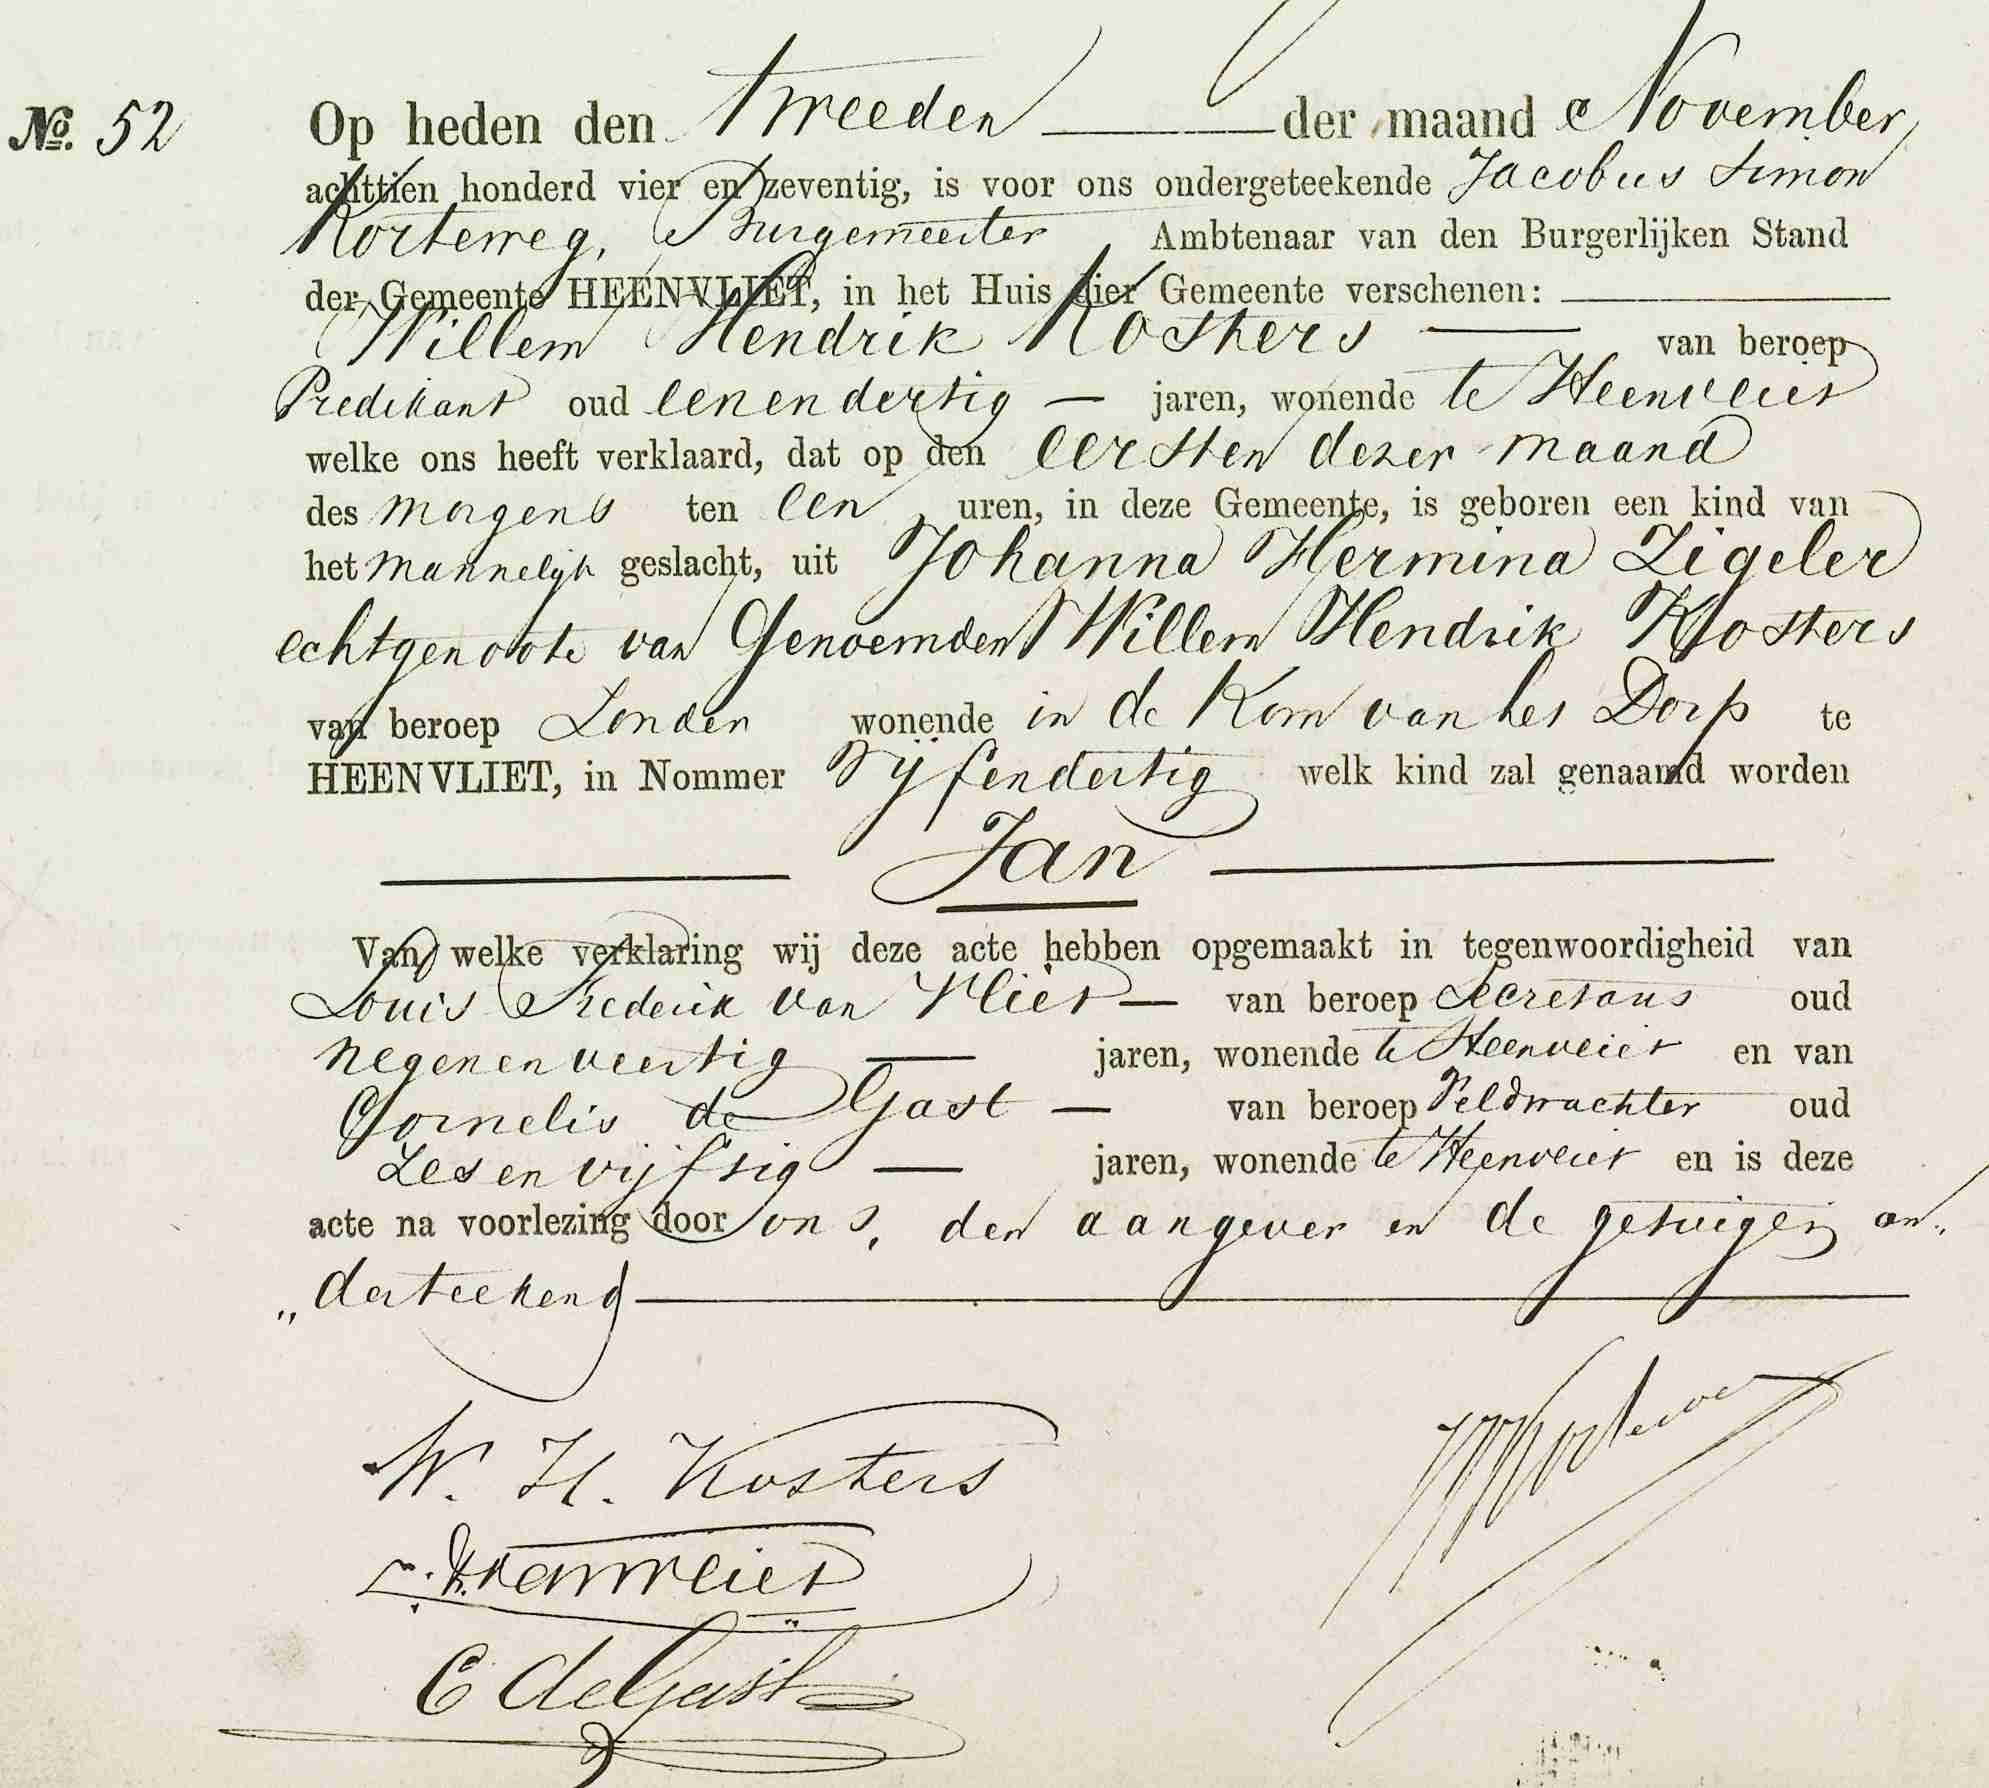 No. 52
Op heden den tweeden der maand November
achttien honderd vier en zeventig, is voor ons ondergeteekende Jacobus Simon
Korteweg, Burgemeester Ambtenaar van den Burgerlijken Stand
der Gemeente HEENVLIET, in het Huis dier Gemeente verschenen:
Willem Hendrik Kosters van beroep
Predikant oud eenendertig jaren, wonende te Heenvliet
welke ons heeft verklaard, dat op den eersten dezer maand
des morgens ten een uren, in deze Gemeente, is geboren een kind van
het mannelijk geslacht, uit Johanna Hermina Zigeler
echtgenoote van Genoemden Willem Hendrik Kosters
van beroep Zonder wonende in de Kom van het Dorp te
HEENVLIET, in Nommer Vijfendertig welk kind zal genaamd worden
Jan
Van welke verklaring wij deze acte hebben opgemaakt in tegenwoordigheid van
Louis Frederik van Vliet van beroep Secretaris oud
negenenveertig jaren, wonende te Heenvliet en van
Cornelis de Gast van beroep Veldwachter oud
Zesenvijftig jaren, wonende te Heenvliet en is deze
acte na voorlezing door ons, den aangever en de getuigen on„
„derteekend
W. H. Kosters
JS Korteweg
L. F. van Vliet
C de Gast